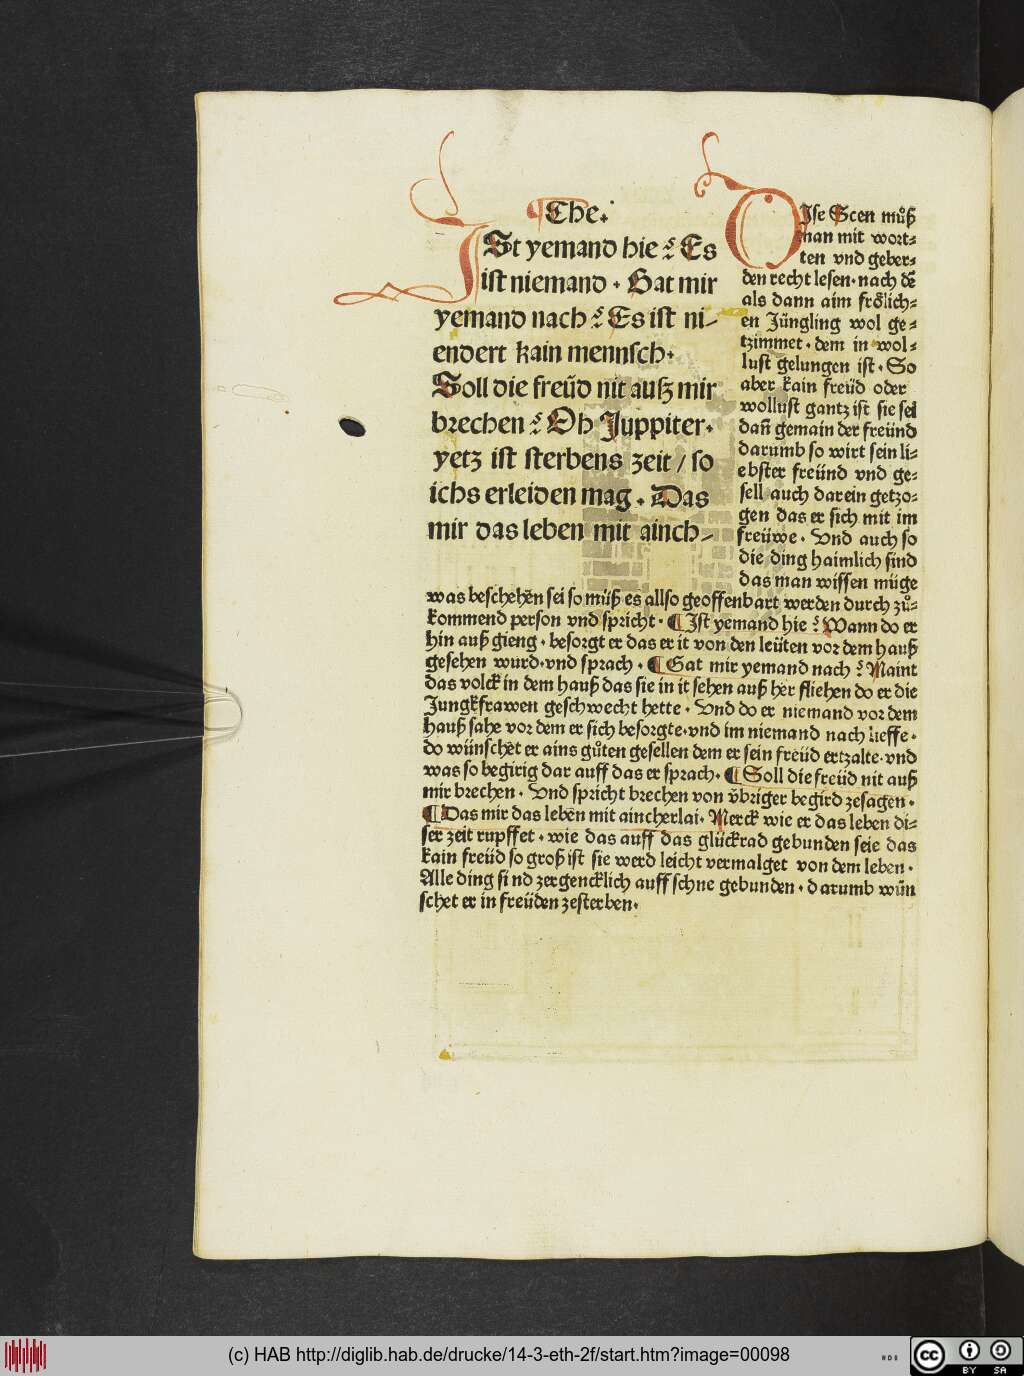 Che.
ISt yemand hie ? Es
ist niemand . Gat mir
yemand nach ? Es ist ni/
endert kain mennsch.
Soll die freüd nit auß mir
brechen ? Oh Juppiter.
yetz ist sterbens zeit / so
ichs erleiden mag . Das
mir das leben mit ainch/
DIse Scen můß
man mit wort⸗
ten vnd geber⸗
den recht lesen. nach dē
als dann aim frőlich⸗
en Jüngling wol ge⸗
tzimmet . dem in wol⸗
lust gelungen ist . So
aber kain freüd oder
wollust gantz ist sie sei
dañ gemain der freünd
darumb so wirt sein li⸗
ebster freünd vnd ge⸗
sell auch darein getzo⸗
gen das er sich mit im
freüwe . Vnd auch so
die ding haimlich sind
das man wissen müge
was beschehēn sei so můß es allso geoffenbart werden durch zů⸗
kommend person vnd spricht . ¶ Ist yemand hie ? Wann do er
hin auß gieng . besorgt er das er it von den leüten vor dem hauß
gesehen wurd. vnd sprach . ¶ Gat mir yemand nach ? Maint
das volck in dem hauß das sie in it sehen auß her fliehen do er die
Jungkfrawen geschwecht hette . Vnd do er niemand vor dem
hauß sahe vor dem er sich besorgte. vnd im niemand nach lieffe .
do wünschēt er ains gůten gesellen dem er sein freüd ertzalte. vnd
was so begirig dar auff das er sprach. ¶ Soll die freüd nit auß
mir brechen . Vnd spricht brechen von v̈briger begird zesagen .
¶ Das mir das lebēn mit aincherlai. Merck wie er das leben di⸗
ser zeit rupffet . wie das auff das glückrad gebunden seie das
kain freüd so groß ist sie werd leicht vermalget von dem leben .
Alle ding sind zergencklich auff schne gebunden . darumb wün
schet er in freüden zesterben .
(c) HAB http://diglib.hab.de/drucke/14-3-eth-2f/start.htm?image=00098
cc BY SA